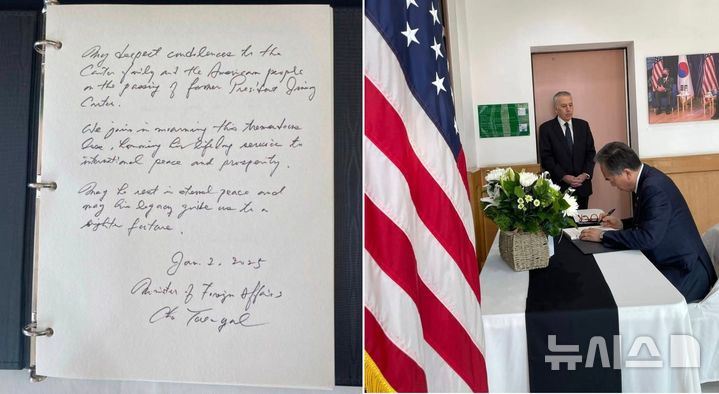 My deepest condolences to the
Carter family and the American people
on the passing of former President Jimmy
Carter.
We join in mourning this tremendous
loss, honoring his lifelong service to
international peace and prosperity.
May he rest in eternal peace and
may his legacy guide us to a
brighter future.
Jan. 2. 2025
Minister of Foreign Affairs
Cho Tae-yul
뉴시스